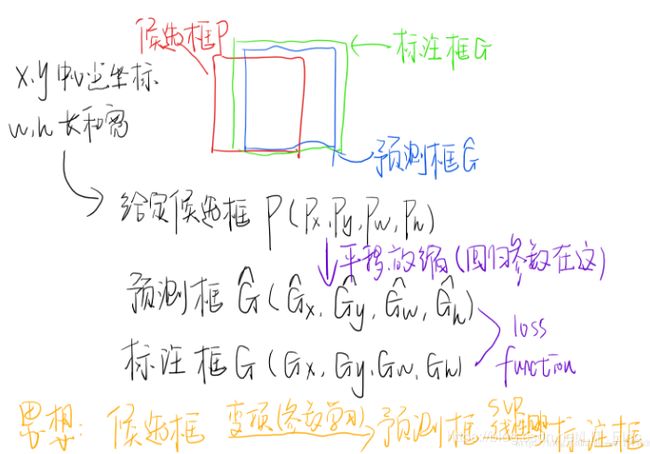 候选框P
标注框G
x,y 中心坐标
w,h 长和宽
预测框Ĝ
给定候选框 P(Px,Py,Pw,Ph)
平移放缩(回归参数在这)
预测框 Ĝ(Ĝx,Ĝy,Ĝw,Ĝh)
标注框 G(Gx,Gy,Gw,Gh)
loss
function
思想: 候选框 变换(参数学习) 预测框 标注框